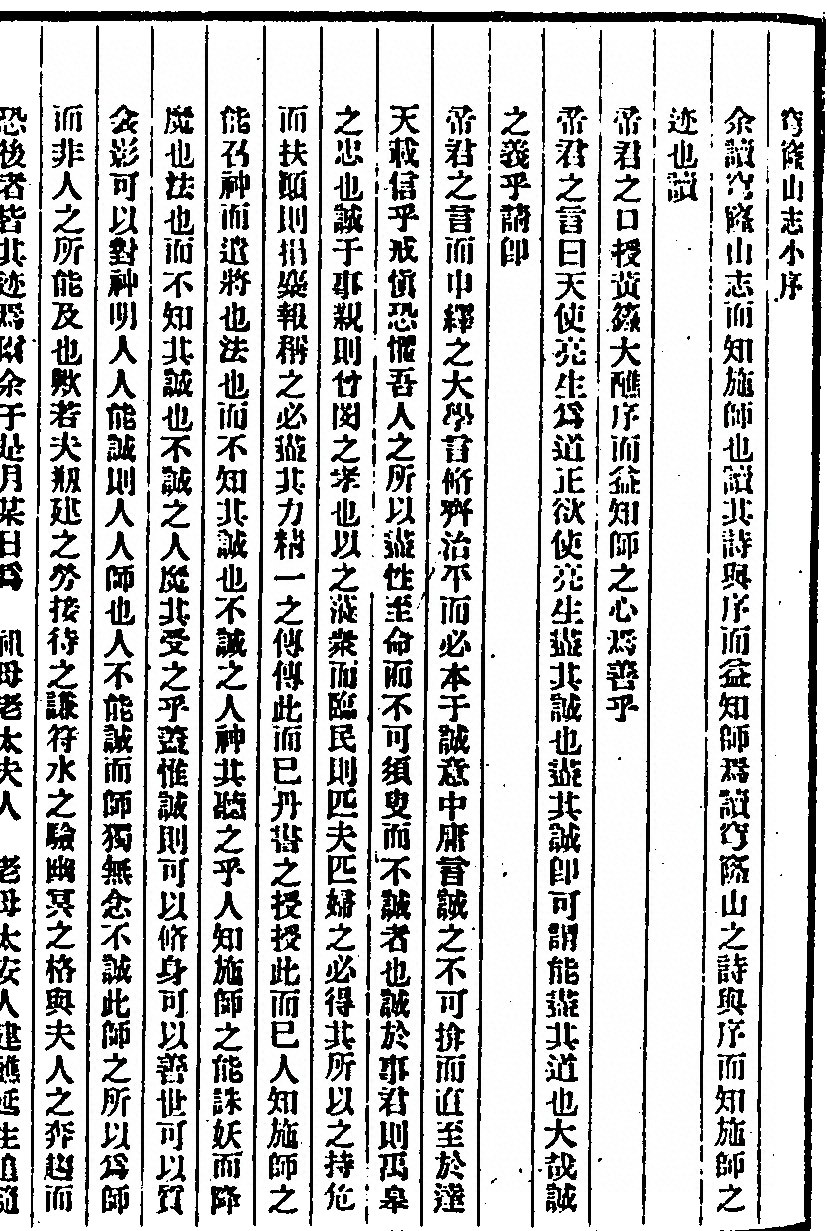 穹窿山志小序
余讀穹窿山志而知施師也讀其詩與序而益知師焉讀穹窿山之詩與序而知施師之
迹也讀
帝君之口授黃籙大醮序而益知師之心焉善乎
帝君之言曰天使亮生爲道正欲使亮生盡其誠也盡其誠卽可謂能盡其道也大哉誠
之義乎請卽
帝君之言而申繹之大學言脩齊治平而必本于誠意中庸言誠之不可揜而直至於達
天載信乎戒愼恐懼吾人之所以盡性至命而不可須臾而不誠者也誠於事君則禹臯
之忠也誠于事親則曾閔之孝也以之涖衆而臨民則匹夫匹婦之必得其所以之持危
而扶顚則捐麋報稱之必盡其力精一之傳傳此而巳丹書之授授此而巳人知施師之
能召神而遣將也法也而不知其誠也不誠之人神其聽之乎人知施師之能誅妖而降
魔也法也而不知其誠也不誠之人魔其受之乎蓋惟誠則可以脩身可以善世可以質
衾影可以對神明人人能誠則人人師也人不能誠而師獨無念不誠此師之所以爲師
而非人之所能及也歟若夫剏建之勞接待之謙符水之驗幽冥之格與夫人之奔趨而
恐後者皆其迹焉爾余于是月某日爲 祖母老太夫人 老母太安人建醮延生追